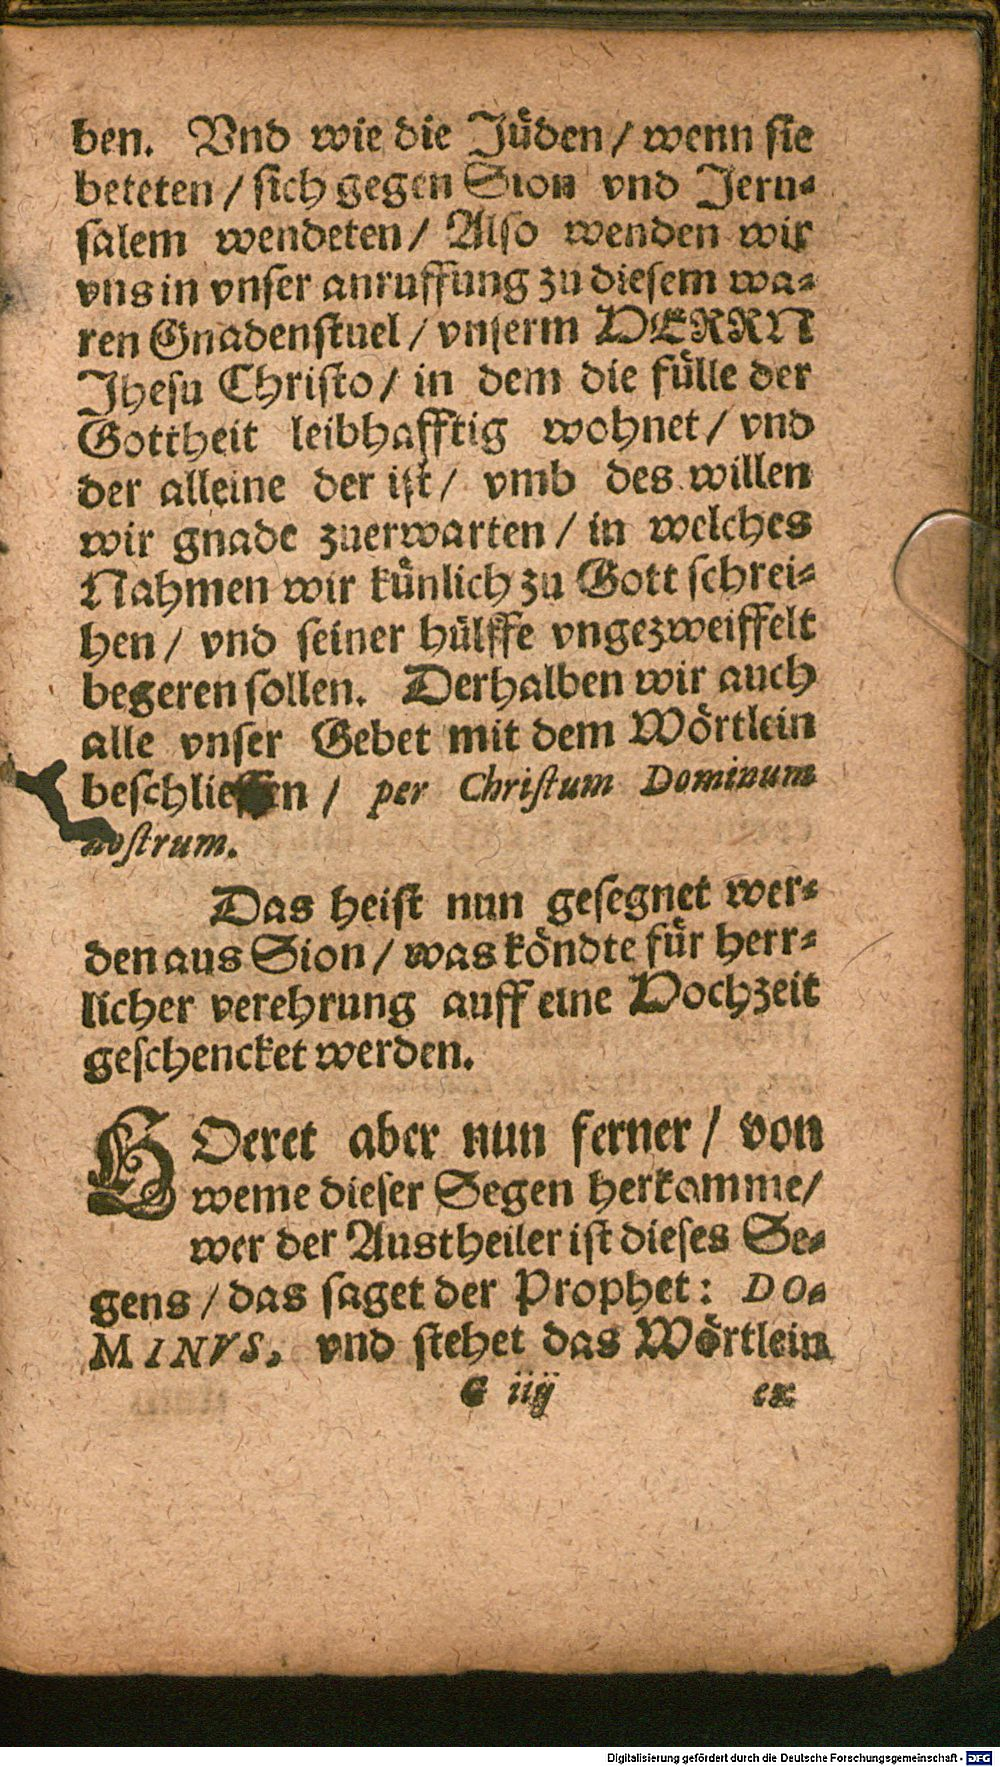 ben. Vnd wie die Jüden / wenn sie
beteten / sich gegen Sion vnd Jeru-
salem wendeten / Also wenden wir
vns in vnser anruffung zu diesem wa-
ren Gnadenstuel / vnserm HERRN
Jhesu Christo / in dem die fülle der
Gottheit leibhafftig wohnet / vnd
der alleine der ist / vmb des willen
wir gnade zuerwarten / in welches
Nahmen wir künlich zu Gott schrei-
hen / vnd seiner hülffe vngezweiffelt
begeren sollen. Derhalben wir auch
alle vnser Gebet mit dem Wörtlein
beschliessen / per Christum Dominum
nostrum.
Das heist nun gesegnet wer-
den aus Sion / was köndte für herr-
licher verehrung auff eine Hochzeit
geschencket werden.
HOeret aber nun ferner / von
weme dieser Segen herkomme /
wer der Austheiler ist dieses Se-
gens / das saget der Prophet: DO-
MINVS, vnd stehet das Wörtlein
G iij
ex
Digitalisierung gefördert durch die Deutsche Forschungsgemeinschaft - DFG